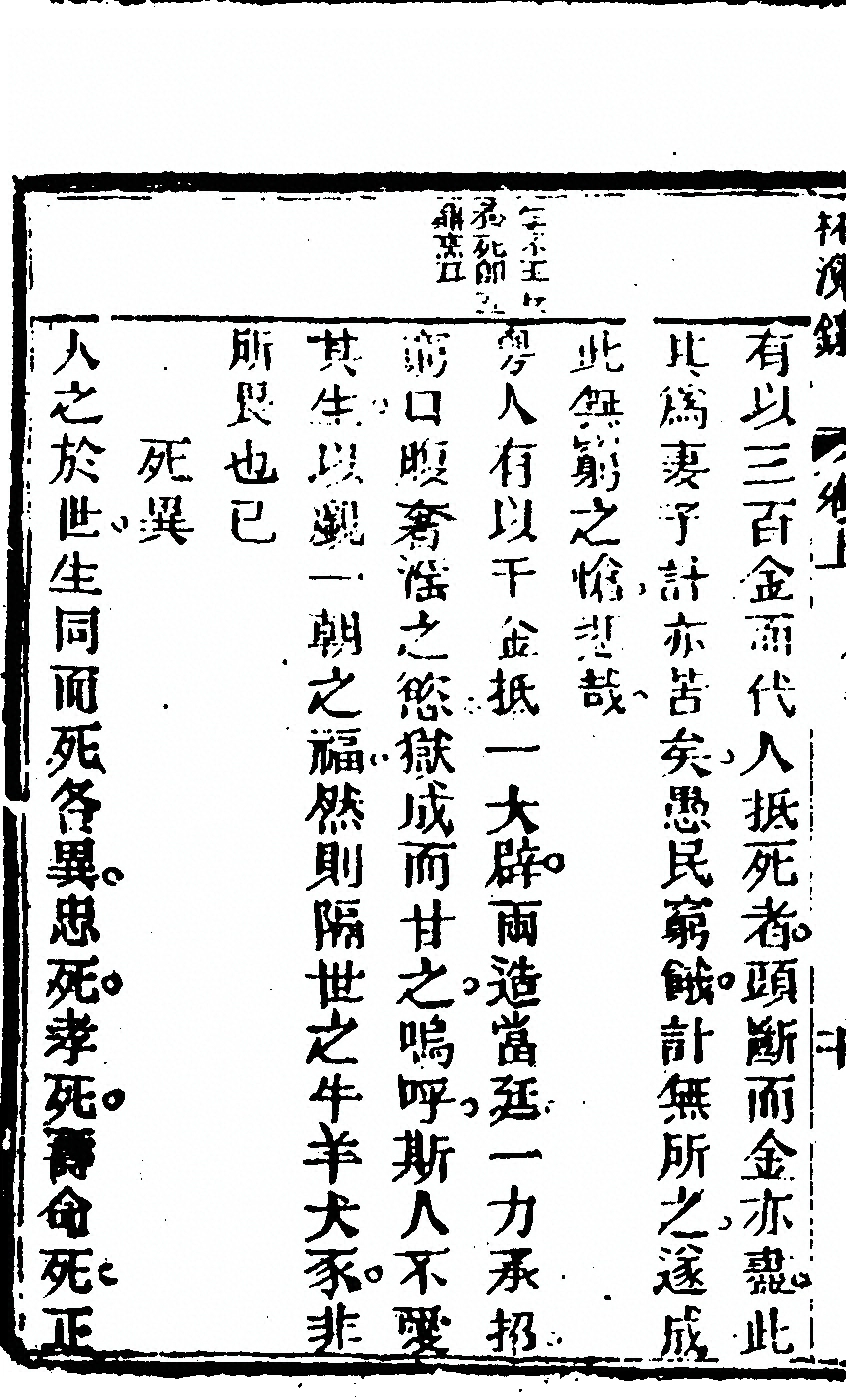 有以三百金而代人抵死者頭斷而金亦盡此
其為妻子計亦苦矣愚民窮餓計無所之遂成
此無窮之愴悲哉
粵人有以千金抵一大辟兩造當廷一力承招
窮口腹奢淫之慾獄成而甘之嗚呼斯人不愛
其生以觀一朝之福然則隔世之牛羊犬豕非
所畏也已
死異
人之於世生同而死各異忠死孝死壽命死正